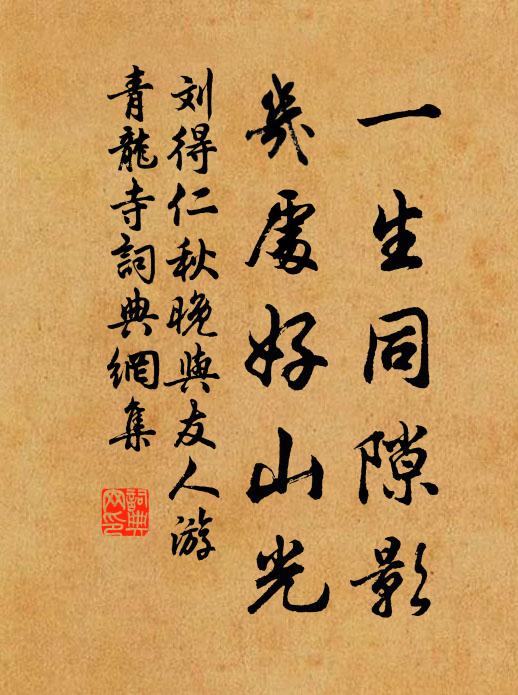 一生同隙影
幾處好山光
刘得仁秋晚與友人游
青龍寺詞典網集
詞典網印